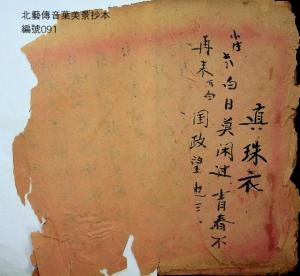 北藝傳音葉美景抄本
編號091
真珠衣
白日莫閑过青春不
再来
国政望